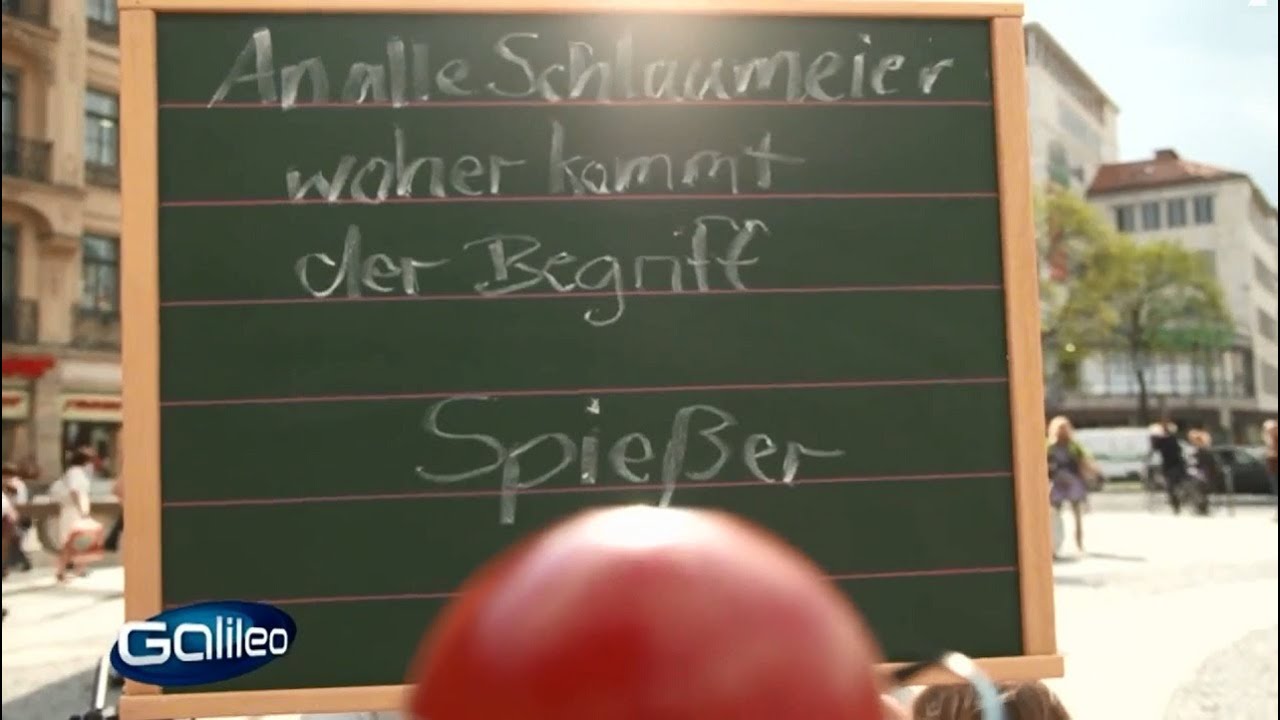 An alle Schlaumeier
woher kommt
der Begriff
Spießer
Galileo